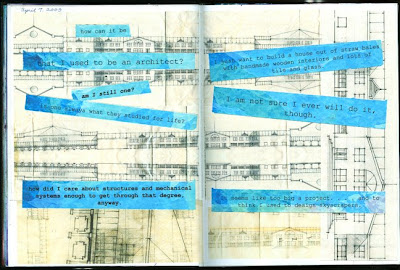 April 7, 2009
how can it be
that I used to be an architect?
am I still one?
is one always what they studied for life?
how did I care about structures and mechanical
systems enough to get through that degree,
anyway.
I want to build a house out of straw bales
with handmade wooden interiors and lots of
tile and glass.
I am not sure I ever will do it,
though.
It seems like too big a project. . . . and to
think I used to design skyscrapers.